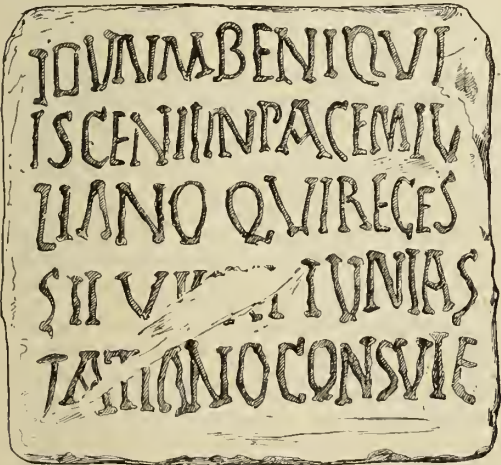 BENIQVI
ISCENIIINPACEMIV
LIANO QVIRECES
SII IVNIAS
TATIANOCONSVIE